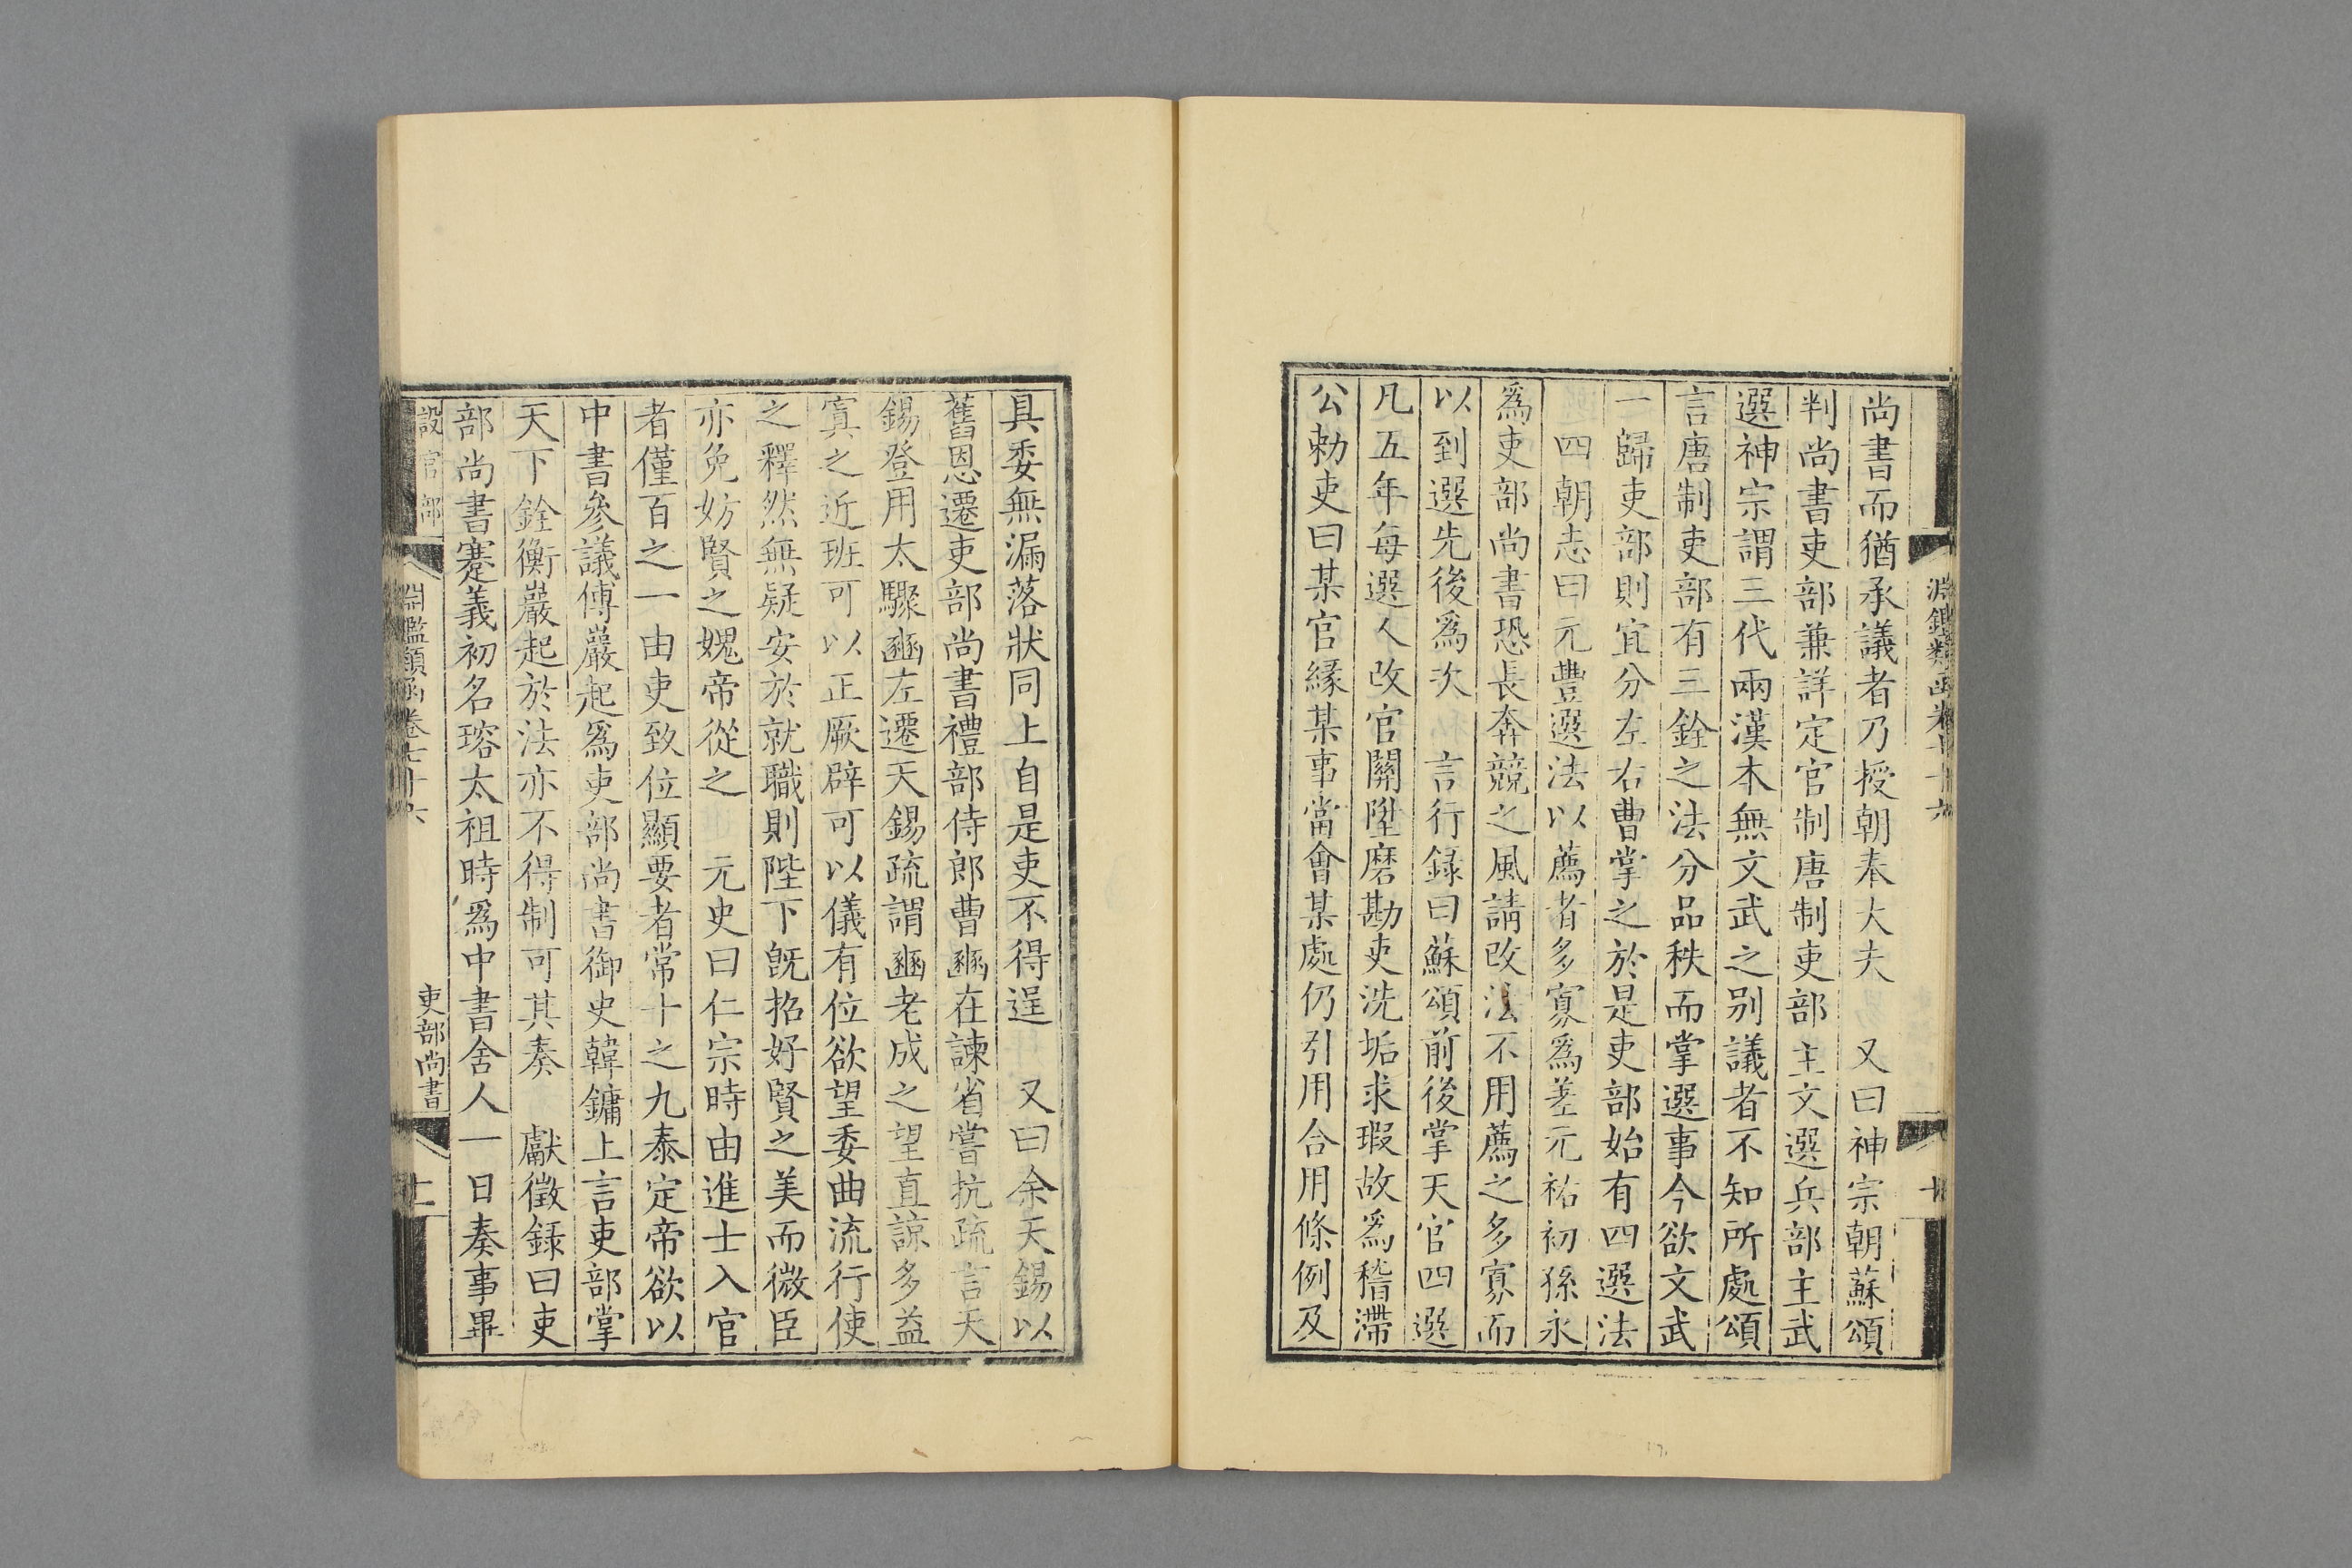 淵鑑類函卷七十六
十
尚書而猶承議者乃授朝奉大夫　又曰神宗朝蘇頌
判尚書吏部兼詳定官制唐制吏部主文選兵部主武
選神宗謂三代兩漢本無文武之别議者不知所處頌
言唐制吏部有三銓之法分品秩而掌選事今欲文武
一歸吏部則宜分左右曹掌之於是吏部始有四選法
四朝志曰元豐選法以薦者多寡爲差元祐初孫永
爲吏部尚書恐長奔競之風請改法不用薦之多寡而
以到選先後爲次　言行録曰蘇頌前後掌天官四選
凡五年每選人改官關陞磨勘吏洗垢求瑕故爲稽滯
公勑吏曰某官緣某事當會某處仍引用合用條例及
具委無漏落狀同上自是吏不得逞　又曰余天錫以
舊恩遷吏部尚書禮部侍郎曹豳在諫省嘗抗疏言天
錫登用太驟豳左遷天錫疏謂豳老成之望直諒多益
寘之近班可以正厥辟可以儀有位欲望委曲流行使
之釋然無疑安於就職則陛下旣招好賢之美而微臣
亦免妨賢之媿帝從之　元史曰仁宗時由進士入官
者僅百之一由吏致位顯要者常十之九泰定帝欲以
中書參議傅巖起爲吏部尚書御史韓鏞上言吏部掌
天下銓衡巖起於法亦不得制可其奏　獻徵録曰吏
部尚書蹇義初名瑢太祖時爲中書舍人一日奏事畢
設官部
淵鑑類函卷七十六
吏部尚書